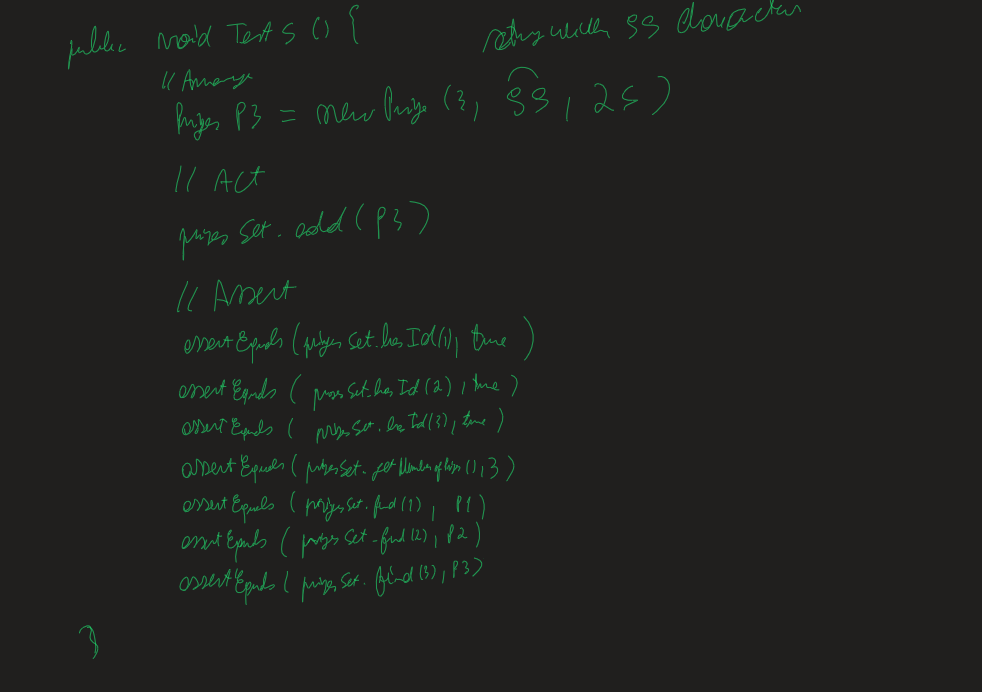 public void Test 5 () {
string with 99 characters
// Arrange
Prizes P3 = new Prize (3, 99, 25)
// Act
prizes Set. add (P3)
// Assert
assertEquals (prizes Set.has Id(1), true)
assertEquals ( prizes Set.has Id (2), true )
assertEquals ( prizes Set. has Id(3), true )
assertEquals ( prizes Set. get Number of Prizes (), 3 )
assertEquals ( prizes Set. find (1), P1 )
assertEquals ( prizes Set. find (2), P2 )
assertEquals ( prizes Set. find (3), P3)
}